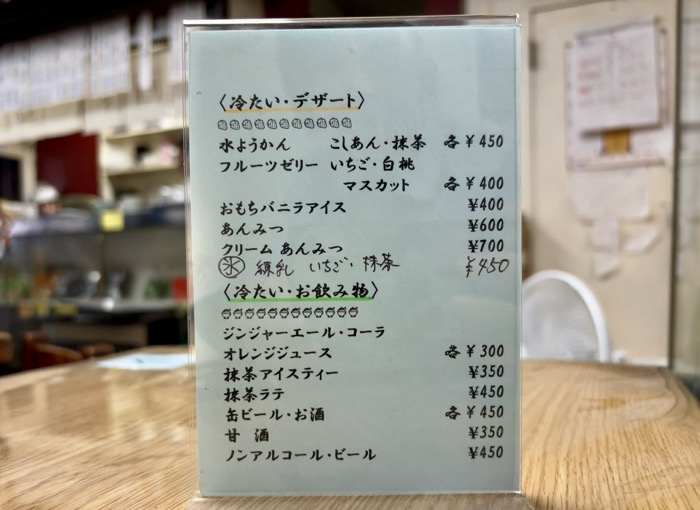 〈冷たい・デザート〉
水ようかん　こしあん・抹茶　各￥450
フルーツゼリー　いちご・白桃
マスカット　各￥400
おもちバニラアイス　￥400
あんみつ　￥600
クリーム あんみつ　￥700
氷　練乳　いちご・抹茶　￥450
〈冷たい・お飲み物〉
ジンジャーエール・コーラ
オレンジジュース　各￥300
抹茶アイスティー　￥350
抹茶ラテ　￥450
缶ビール・お酒　各￥450
甘　酒　￥350
ノンアルコール・ビール　￥450